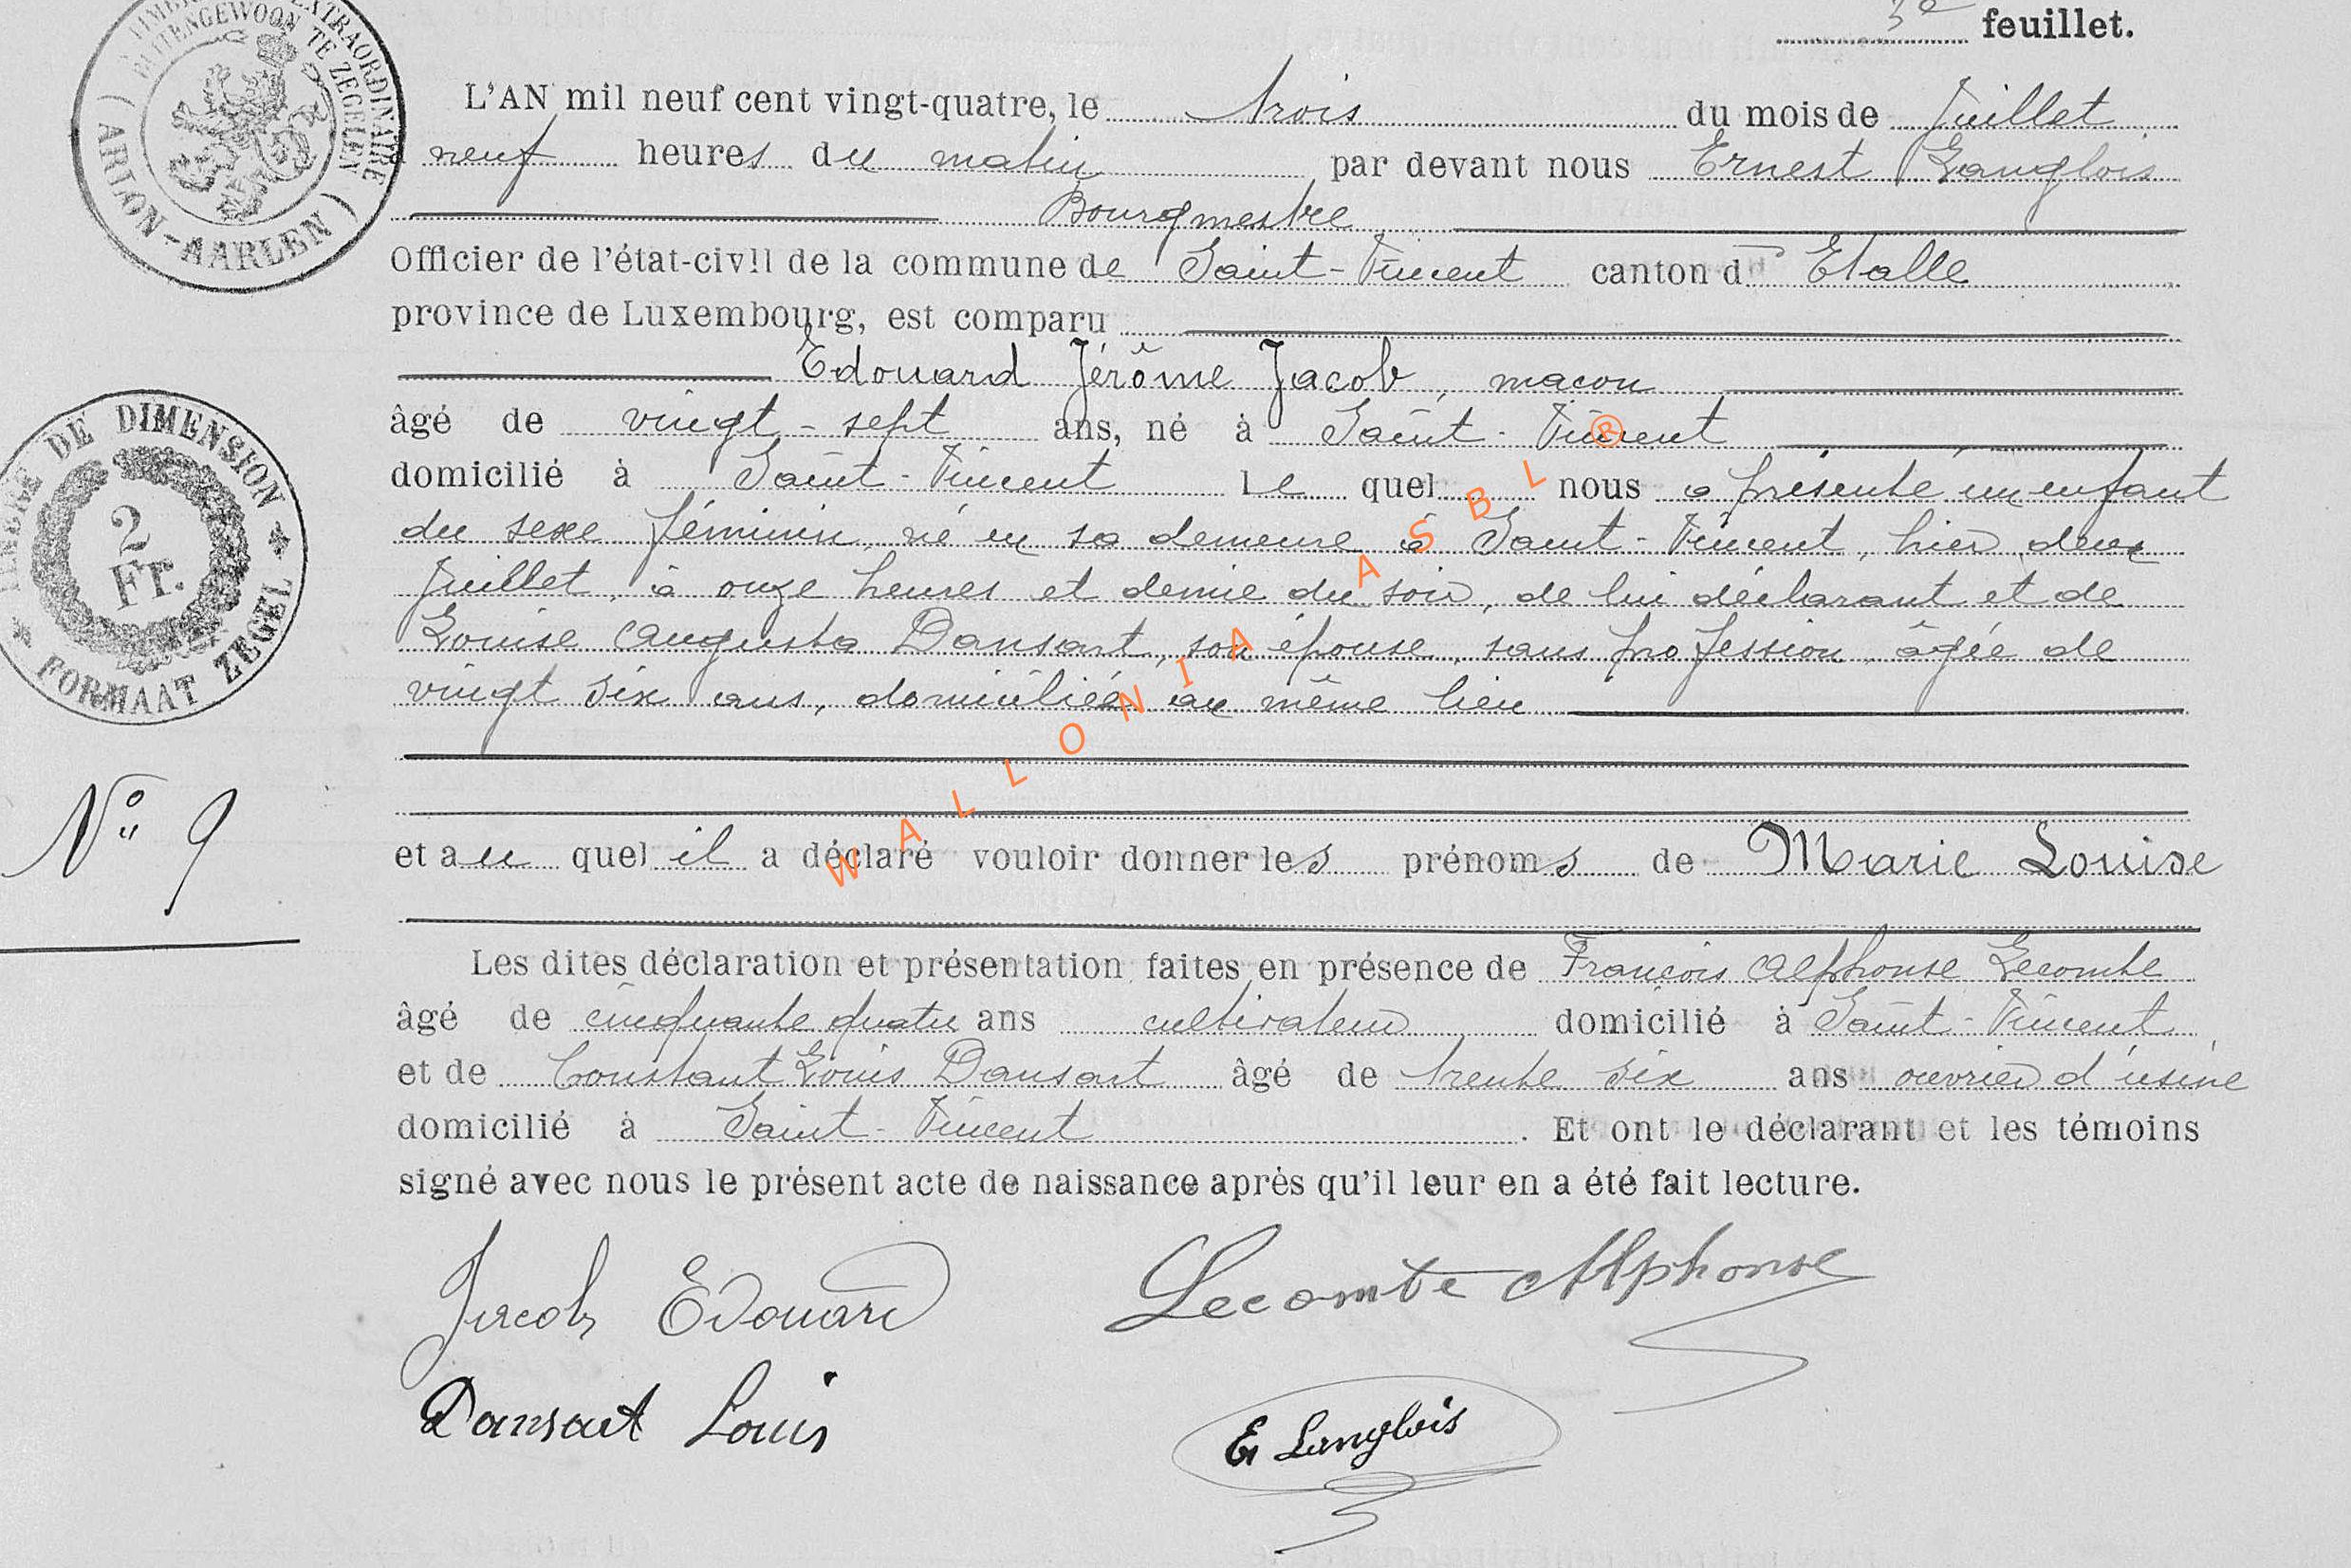 3e feuillet.
TIMBRE EXTRAORDINAIRE
BUITENGEWOON TE ZEGELEN
( ARLON - AARLEN )
L'AN mil neuf cent vingt-quatre, le trois du mois de Juillet
à neuf heures du matin par devant nous Ernest Langlois
Bourgmestre
Officier de l'état-civil de la commune de Saint-Vincent canton d' Etalle
province de Luxembourg, est comparu
Edouard Jérôme Jacob, maçon
âgé de vingt-sept ans, né à Saint-Vincent
domicilié à Saint-Vincent Le quel nous a présenté un enfant
du sexe féminin, né en sa demeure à Saint-Vincent, hier deux
Juillet, à onze heures et demie du soir, de lui déclarant et de
Louise Augusta Dansart, son épouse, sans profession, âgée de
vingt six ans, domiciliée au même lieu.
TIMBRE DE DIMENSION
2
Fr.
FORMAAT ZEGEL
No 9
et au quel il a déclaré vouloir donner les prénoms de Marie Louise
Les dites déclaration et présentation faites en présence de François Alphonse Lecomte
âgé de cinquante quatre ans cultivateur domicilié à Saint-Vincent
et de Constant Louis Dansart âgé de trente six ans ouvrier d'usine
domicilié à Saint-Vincent. Et ont le déclarant et les témoins
signé avec nous le présent acte de naissance après qu'il leur en a été fait lecture.
Jacob Edouard Lecomte Alphonse
Dansart Louis E Langlois
WALLONIA ASBL ®